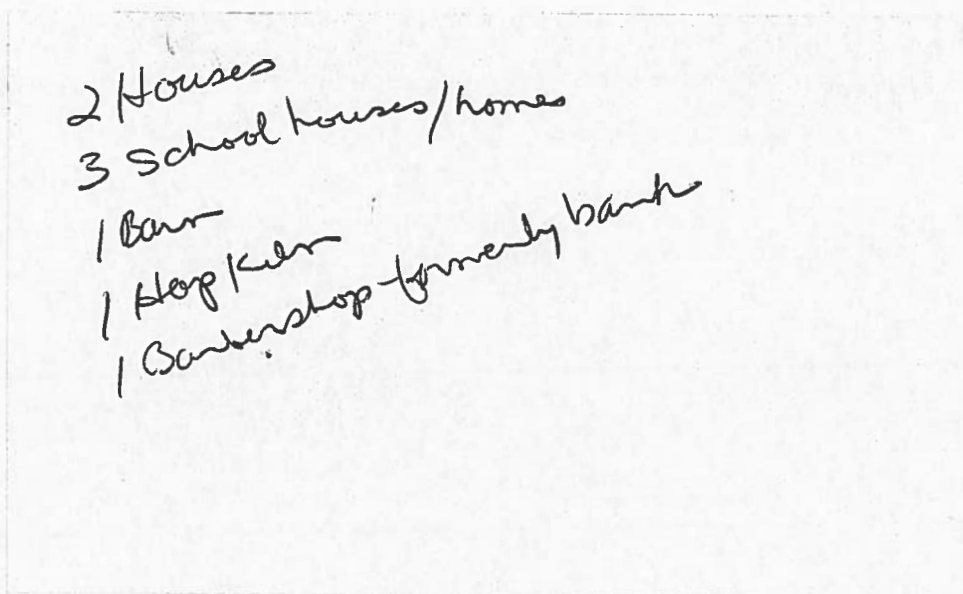 2 Houses
3 School houses/homes
1 Barn
1 Hop Kiln
1 Barbershop-formerly bank